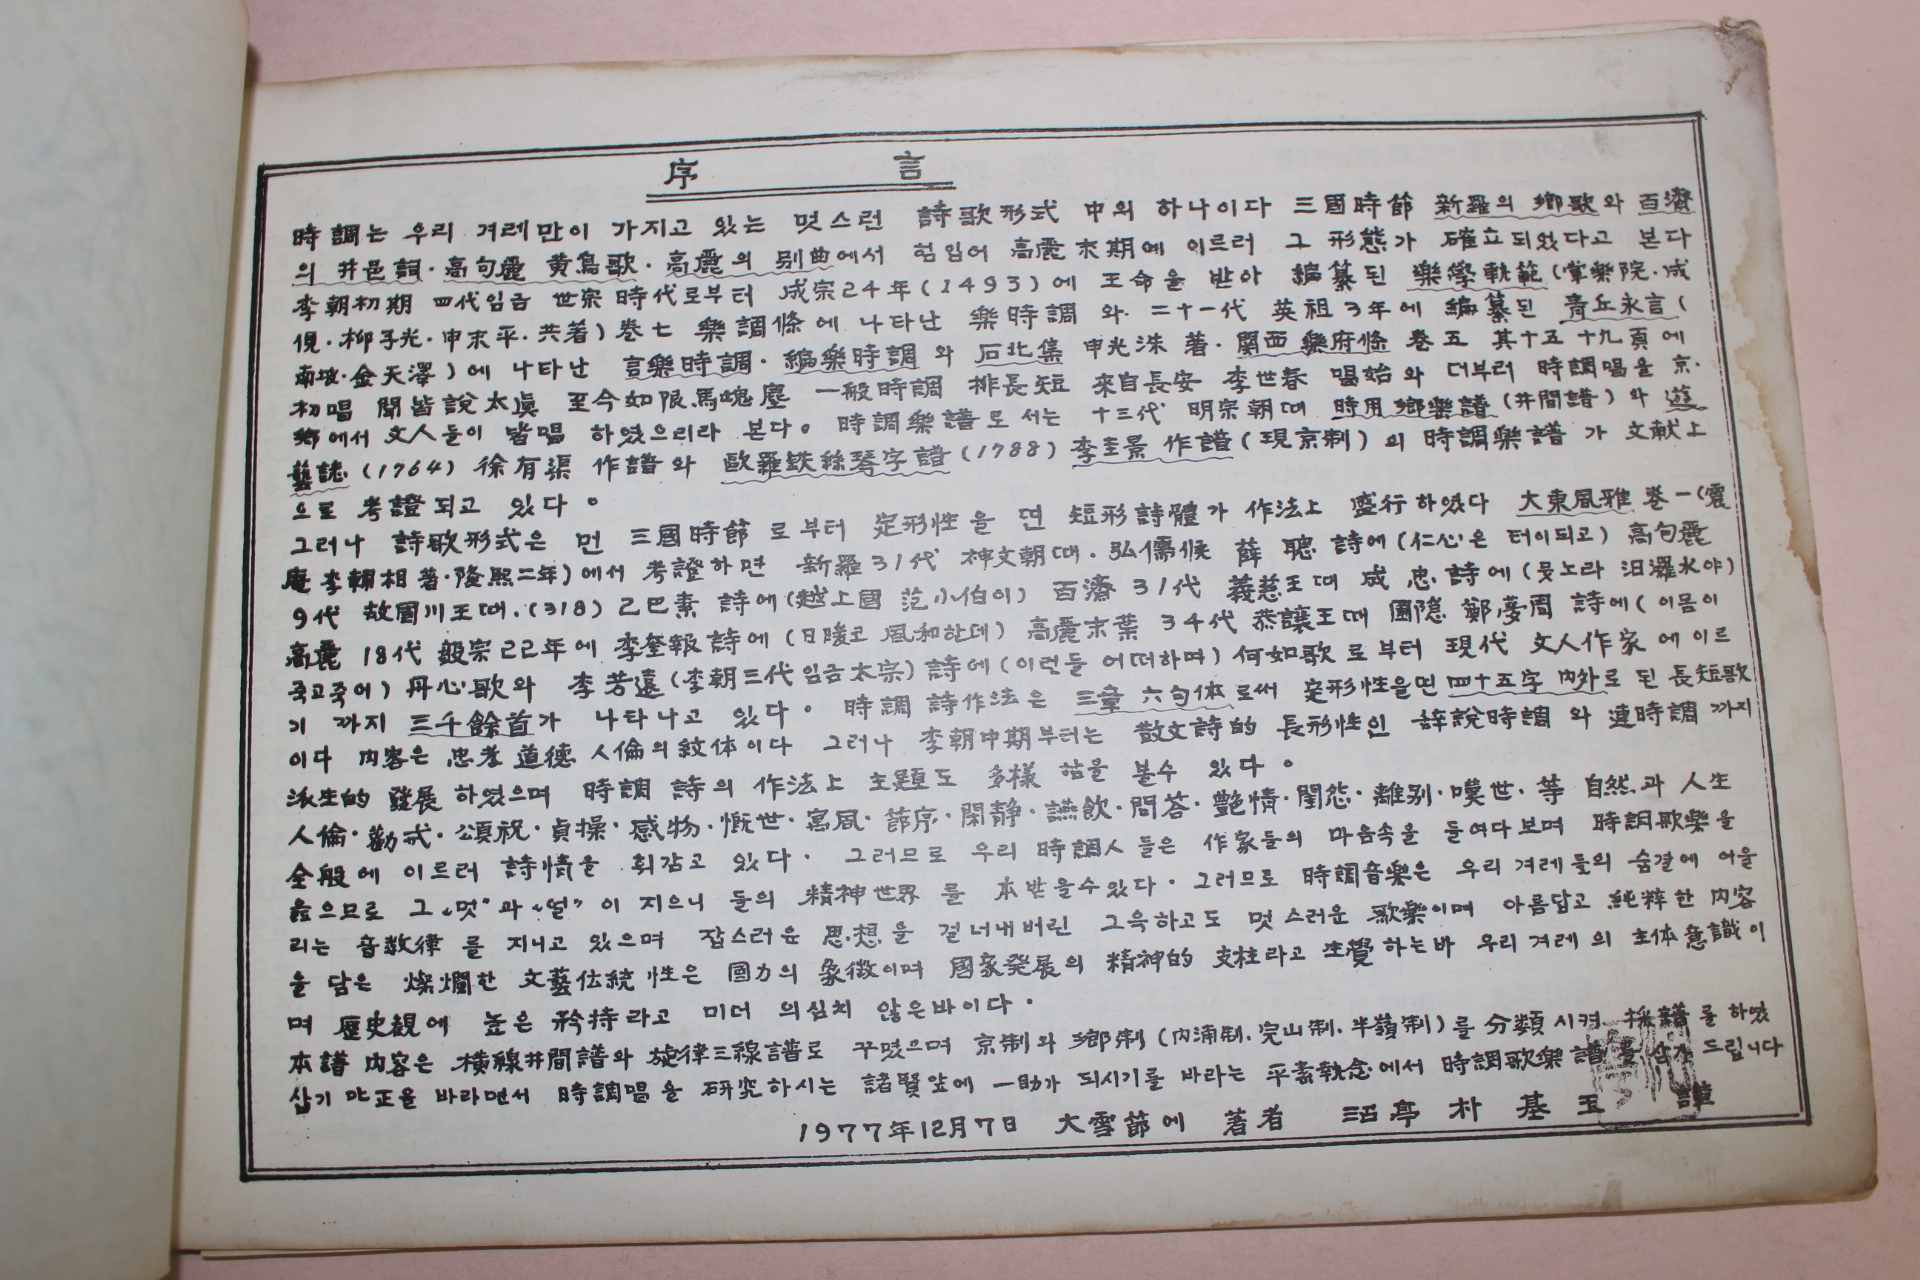 序 言
時調는 우리 겨레만이 가지고 있는 멋스런 詩歌形式 中의 하나이다 三國時節 新羅의 鄕歌와 百濟
의 井邑詞·高句麗 黃鳥歌·高麗의 別曲에서 힘입어 高麗末期에 이르러 그 形態가 確立되었다고 본다
李朝初期 四代임금 世宗時代로부터 成宗24年(1493)에 王命을 받아 編纂된 樂學軌範(掌樂院·成
俔·柳子光·申末平·共著)卷七 樂調條에 나타난 樂時調 와·二十一代 英祖3年에 編纂된 靑丘永言(
南坡·金天澤)에 나타난 言樂時調·編樂時調와 石北集 申光洙 著·關西樂府條 卷五 其十五 十九頁에
初唱 聞皆說太眞 至今如恨馬嵬塵 一般時調 排長短 來自長安 李世春 唱始와 더부러 時調唱을 京·
鄕에서 文人들이 皆唱 하였으리라 본다。時調樂譜도 서는 十三代 明宗朝때 時用鄕樂譜(井間譜)와 遊
藝誌(1764)徐有榘 作譜와 歐羅鉄絲琴字譜(1788)李圭景 作譜(現京制)의 時調樂譜가 文献上
으로 考證되고 있다。
그러나 詩歌形式은 먼 三國時節로부터 定形性을 띤 短形詩體가 作法上 盛行하였다 大東風雅 卷一(震
庵 李輔相著·隆熙二年)에서 考證하면 新羅31代 神文朝때·弘儒候 薛聰 詩에(仁心은 터이되고) 高句麗
9代 故國川王때·(318)乙巴素 詩에(越上國 范小伯이) 百濟 31代 義慈王때 成忠 詩에(뭇노라 汨羅水야)
高麗 18代 毅宗22年에 李奎報詩에(日暖코 風和한데) 高麗末葉 34代 恭讓王때 圃隱 鄭夢周 詩에(이몸이
죽고죽어)丹心歌와 李芳遠(李朝三代임금太宗)詩에(이런들 어떠하며)何如歌로부터 現代 文人作家에 이르
기 까지 三千餘首가 나타나고 있다。時調詩作法은 三章六句体로써 定形性을띤 四十五字 內外로 된 長短歌
이다 內容은 忠孝 道德 人倫의 紋体이다 그러나 李朝中期부터는 散文詩的 長形性인 辭說時調와 連時調 까지
派生的 發展하였으며 時調詩의 作法上 主題도 多樣 함을 볼수 있다。
人倫·勸戒·頌祝·貞操·感物·慨世·寓風·節序·閑靜·讌飮·問答·艶情·閨怨·離別·嘆世·等 自然과 人生
全般에 이르러 詩情을 휘감고 있다·그러므로 우리 時調人들은 作家들의 마음속을 들여다보며 時調歌樂을
읊으므로 그 "멋"과 "얼"이 지으니 들의 精神世界를 本받을수있다·그러므로 時調音樂은 우리겨레들의 숨결에 어울
리는 音數律를 지니고 있으며 잡스러운 思想을 걸너내버린 그윽하고도 멋스러운 歌樂이며 아름답고 純粹한 內容
을 담은 燦爛한 文藝伝統性은 國力의 象徵이며 國家発展의 精神的 支柱라고 生覺하는바 우리겨레의 主体意識이
며 歷史観에 높은 矜持라고 미더 의심치 않은바이다·
本譜 內容은 橫線井間譜와 旋律三線譜로 꾸몄으며 京制와 鄕制(內浦制·完山制·半嶺制)를 分類시켜 採譜를 하였
삽기 叱正을 바라면서 時調唱을 硏究하시는 諸賢앞에 一助가 되시기를 바라는 平素執念에서 時調歌樂 譜를 삼가 드립니다
1977年12月7日 大雪節에 著者 沼亭 朴 基 玉 謹